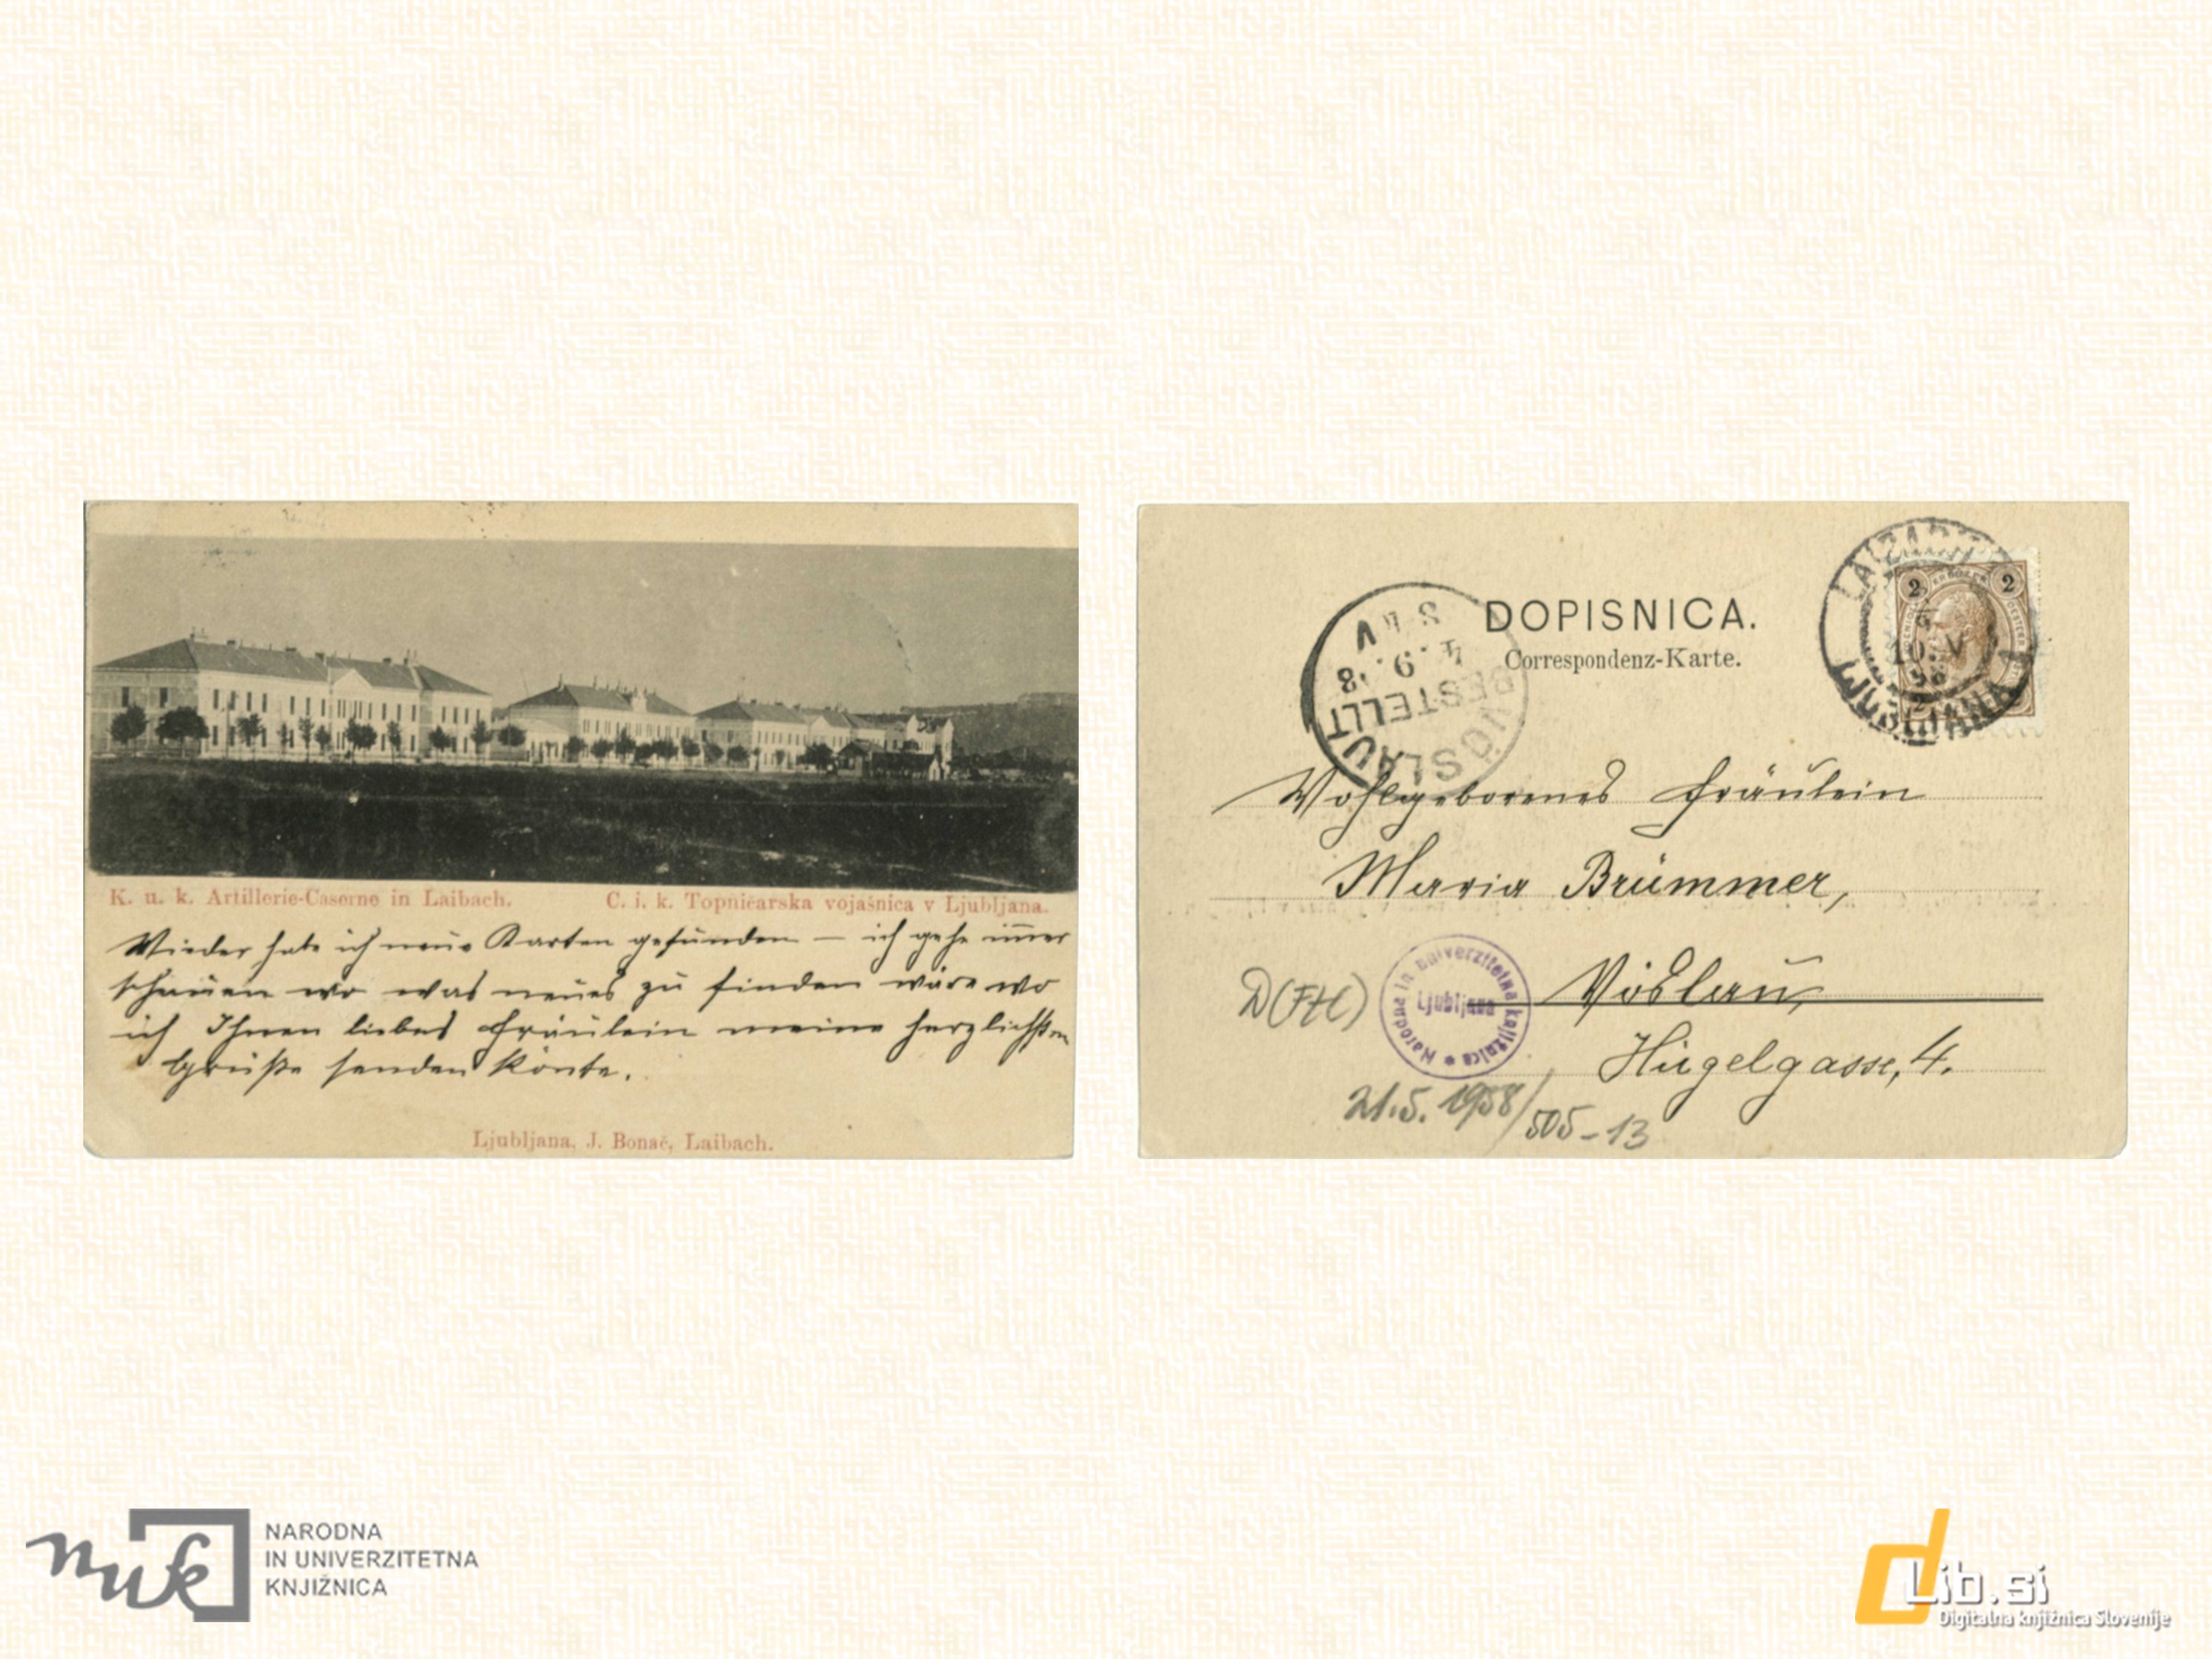 K. u. k. Artillerie-Caserne in Laibach. C. i. k. Topničarska vojašnica v Ljubljana.
Wieder habe ich neue Karten gefunden — ich gehe im̅er
schauen wo was neues zu finden wäre wo
ich Ihnen liebes Fräulein meine herzlichsten
Grüße senden kön̅te.
Ljubljana, J. Bonač, Laibach.
DOPISNICA.
Correspondenz-Karte.
LAIBACH
LJUBLJANA
10. V
98
2 2
VÖSLAU
BESTELLT
Wohlgeborenes Fräulein
Maria Brümmer,
Vöslau,
Hügelgasse, 4.
D(FH)
Narodna in univerzitetna knjižnica
Ljubljana
21.5.1958/505-13
nuk
NARODNA
IN UNIVERZITETNA
KNJIŽNICA
dLib.si
Digitalna knjižnica Slovenije